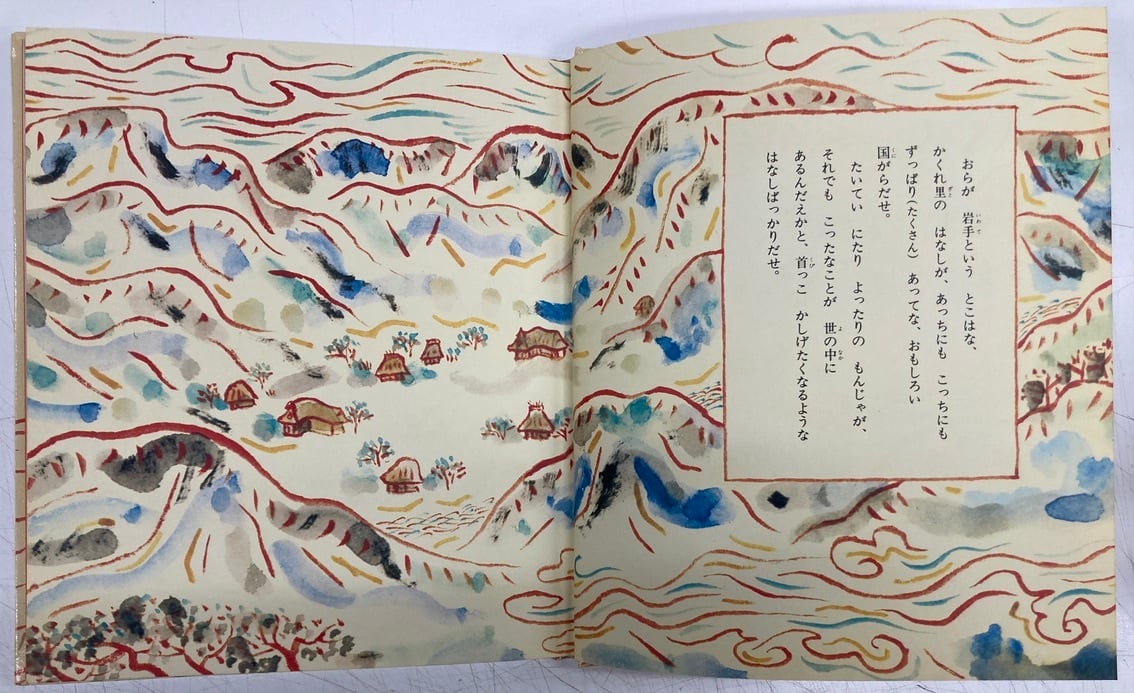 おらが　岩手という　とこはな、
かくれ里の　はなしが、あっちにも　こっちにも
ずっぱり(たくさん)　あってな、おもしろい
国がらだせ。
たいてい　にたり　よったりの　もんじゃが、
それでも　こったなことが　世の中に
あるんだえかと、首っこ　かしげたくなるような
はなしばっかりだせ。